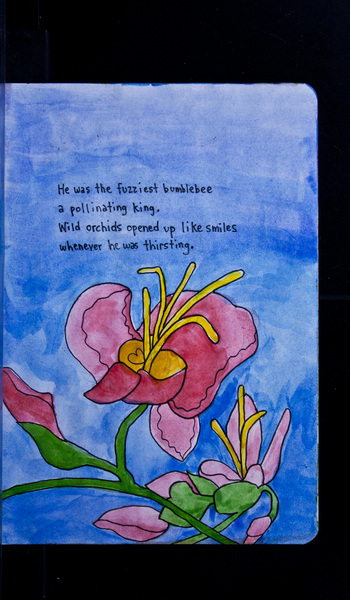 He was the fuzziest bumblebee
a pollinating king.
Wild orchids opened up like smiles
whenever he was thirsting.